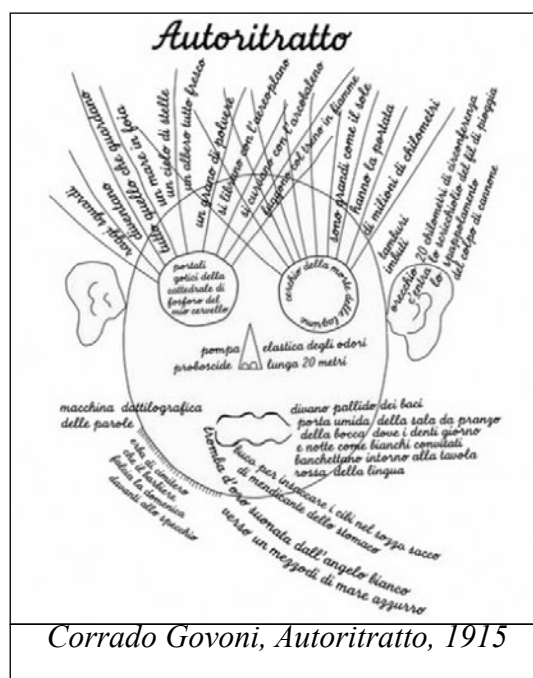 Autoritratto
raggi sguardi
diventano
tutto quello che guardano
un mare in foia
un cielo di stelle
un albero tutto fresco
un grano di polvere
si librano con l'aereoplano
si curvano con l'arcobaleno
fuggono col treno in fiamme
sono grandi come il sole
hanno la portata
di milioni di chilometri
tamburi
imbuti
orecchio 20 chilometri di circonferenza
c'entra lo scricchiolio del fil di pioggia
lo spappolamento
del colpo di cannone
portali
gotici della
cattedrale di
fosforo del
mio cervello
cerchio della morte delle lagrime
pompa elastica degli odori
proboscide lunga 20 metri
macchina dattilografica
delle parole
divano pallido dei baci
porta umida della sala da pranzo
della bocca dove i denti giorno
e notte come bianchi convitati
banchettano intorno alla tavola
rossa della lingua
erba di cimitero
che il barbiere
falcia la domenica
davanti allo specchio
buca per insaccare i cibi nel sozzo sacco
di mendicante dello stomaco
tromba d'oro suonata dall'angelo bianco
verso un mezzodì di mare azzurro
Corrado Govoni, Autoritratto, 1915